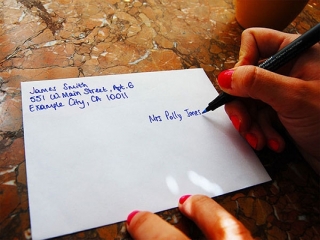 James Smith
551 W Main Street, Apt. 6
Example City, CA 10011
Mrs Polly Jones